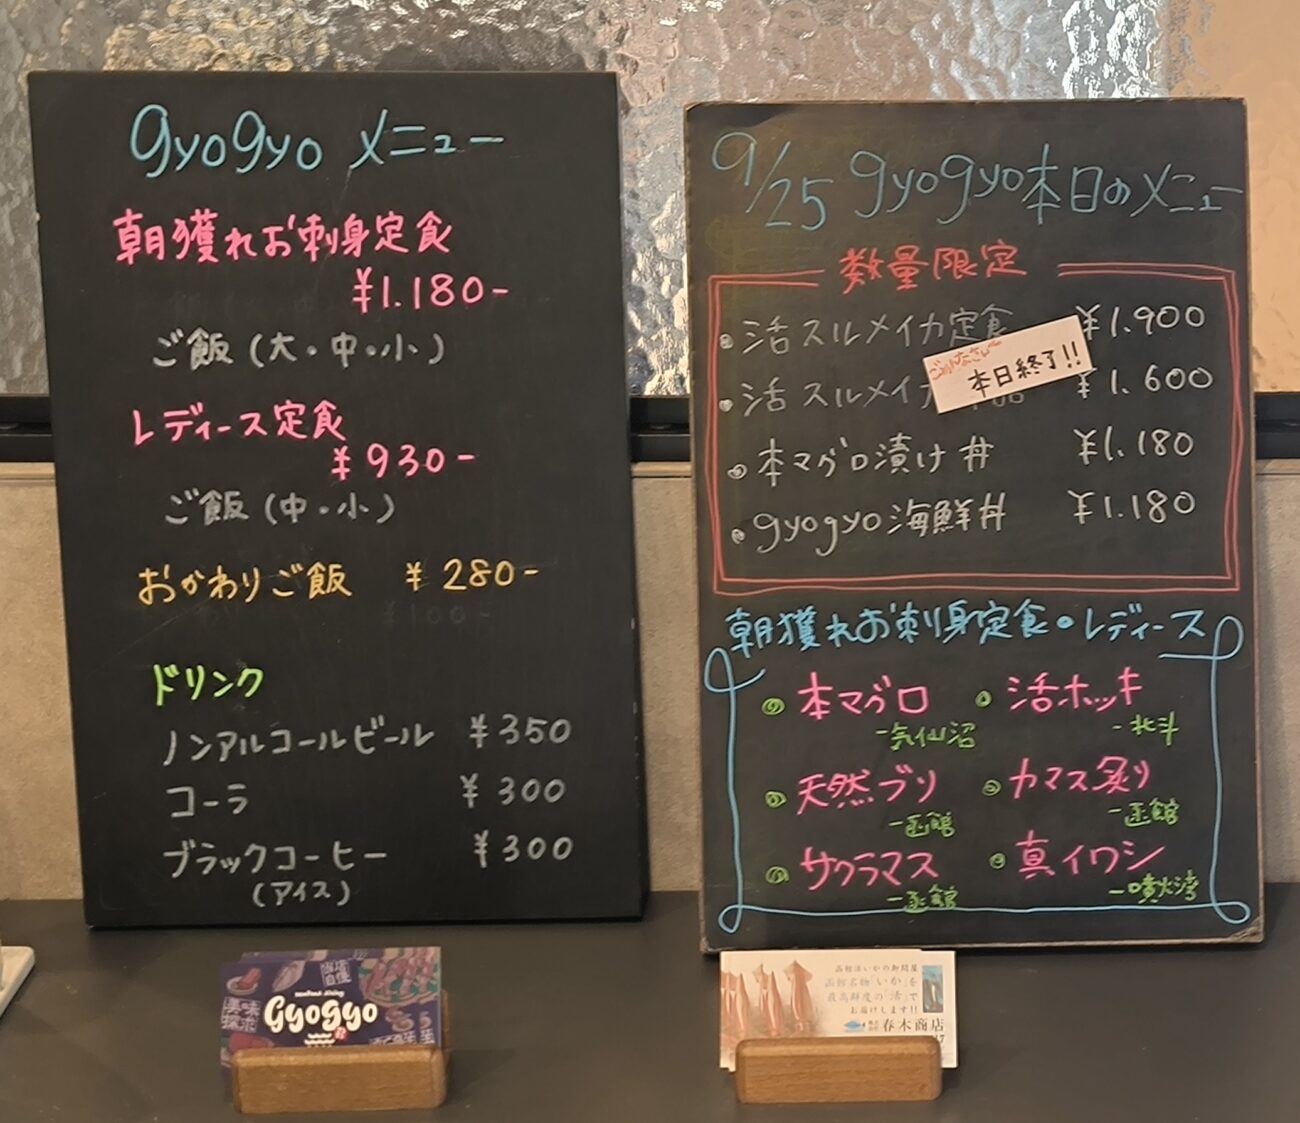 gyogyo メニュー
朝獲れお刺身定食
¥1.180-
ご飯(大・中・小)
レディース定食
¥930-
ご飯(中・小)
おかわりご飯 ¥280-
ドリンク
ノンアルコールビール ¥350
コーラ ¥300
ブラックコーヒー ¥300
(アイス)
9/25 gyogyo本日のメニュー
数量限定
活スルメイカ定食 ¥1.900
ごめんなさい
本日終了!!
活スルメイカ ¥1.600
本マグロ漬け丼 ¥1.180
gyogyo海鮮丼 ¥1.180
朝獲れお刺身定食・レディース
本マグロ
-気仙沼
活ホッキ
-北斗
天然ブリ
-函館
カマス炙り
-函館
サクラマス
-函館
真イワシ
-噴火湾
Gyogyo
函館活いかの卸問屋
函館名物「いか」を
最高鮮度の「活」で
お届けします!!
春木商店